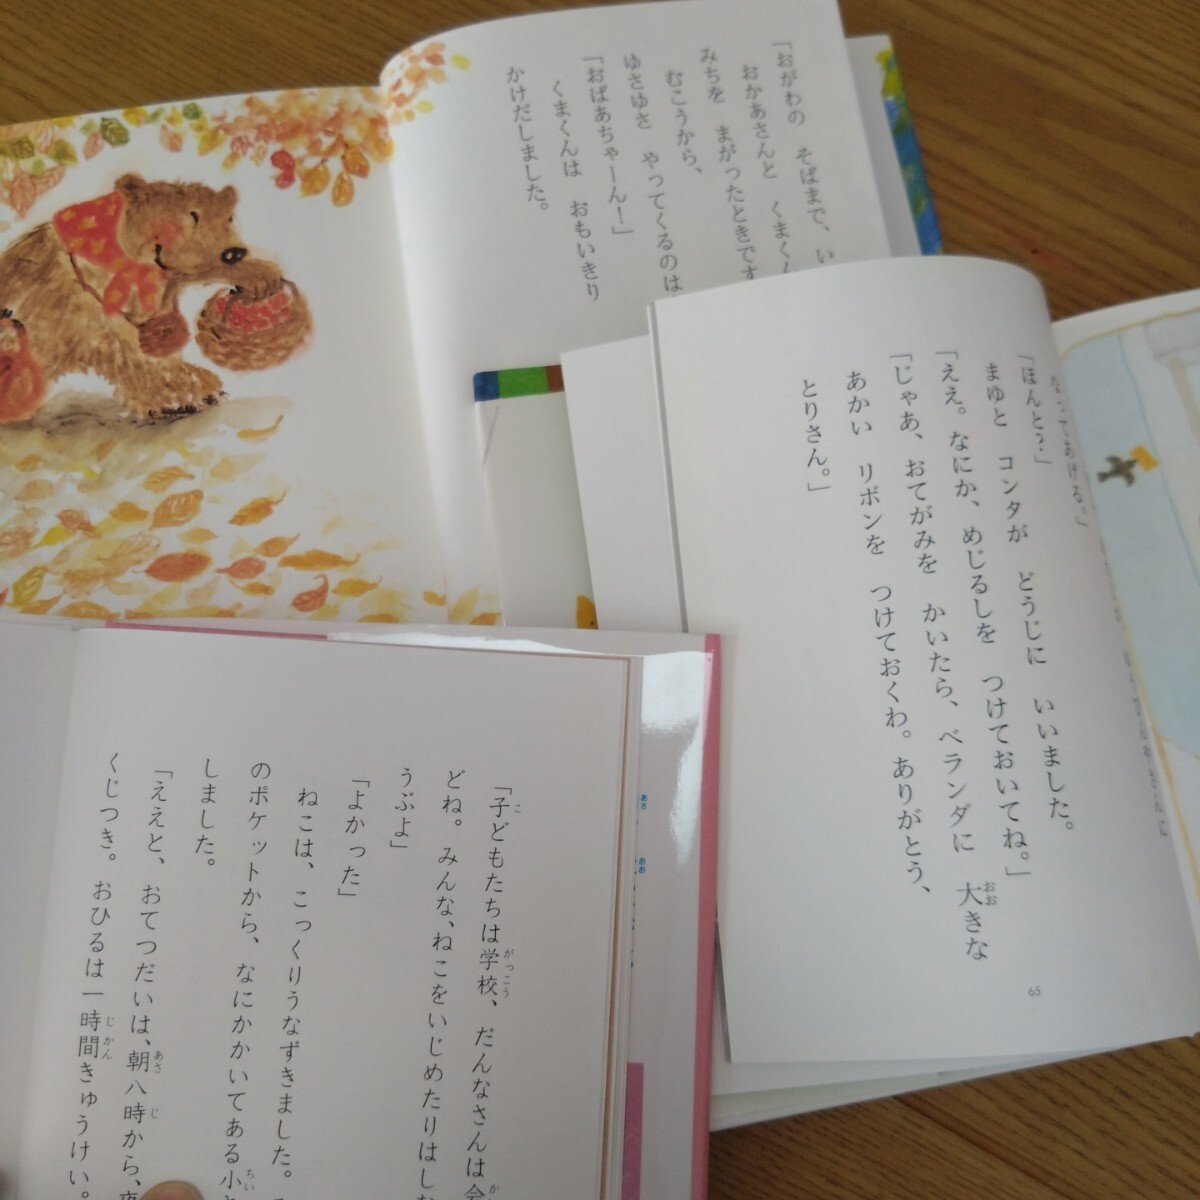 「おがわの そばまで、い
おかあさんと くまく
みちを まがったときです
むこうから、
ゆさゆさ やってくるのは
「おばあちゃーん！」
くまくんは おもいきり
かけだしました。
ってあげる。」
「ほんと？」
まゆと コンタが どうじに いいました。
「ええ。なにか、めじるしを つけておいてね。」
「じゃあ、おてがみを かいたら、ベランダに 大きな
おお
あかい リボンを つけておくわ。ありがとう、
とりさん。」
65
あさ
おお
「子どもたちは学校、だんなさんは会
こ
がっこう
か
どね。みんな、ねこをいじめたりはしな
うぶよ」
「よかった」
ねこは、こっくりうなずきました。
のポケットから、なにかかいてある小
ちい
しました。
「ええと、おてつだいは、朝八時から、夜
あさ
じ
くじつき。おひるは一時間きゅうけい。
じかん